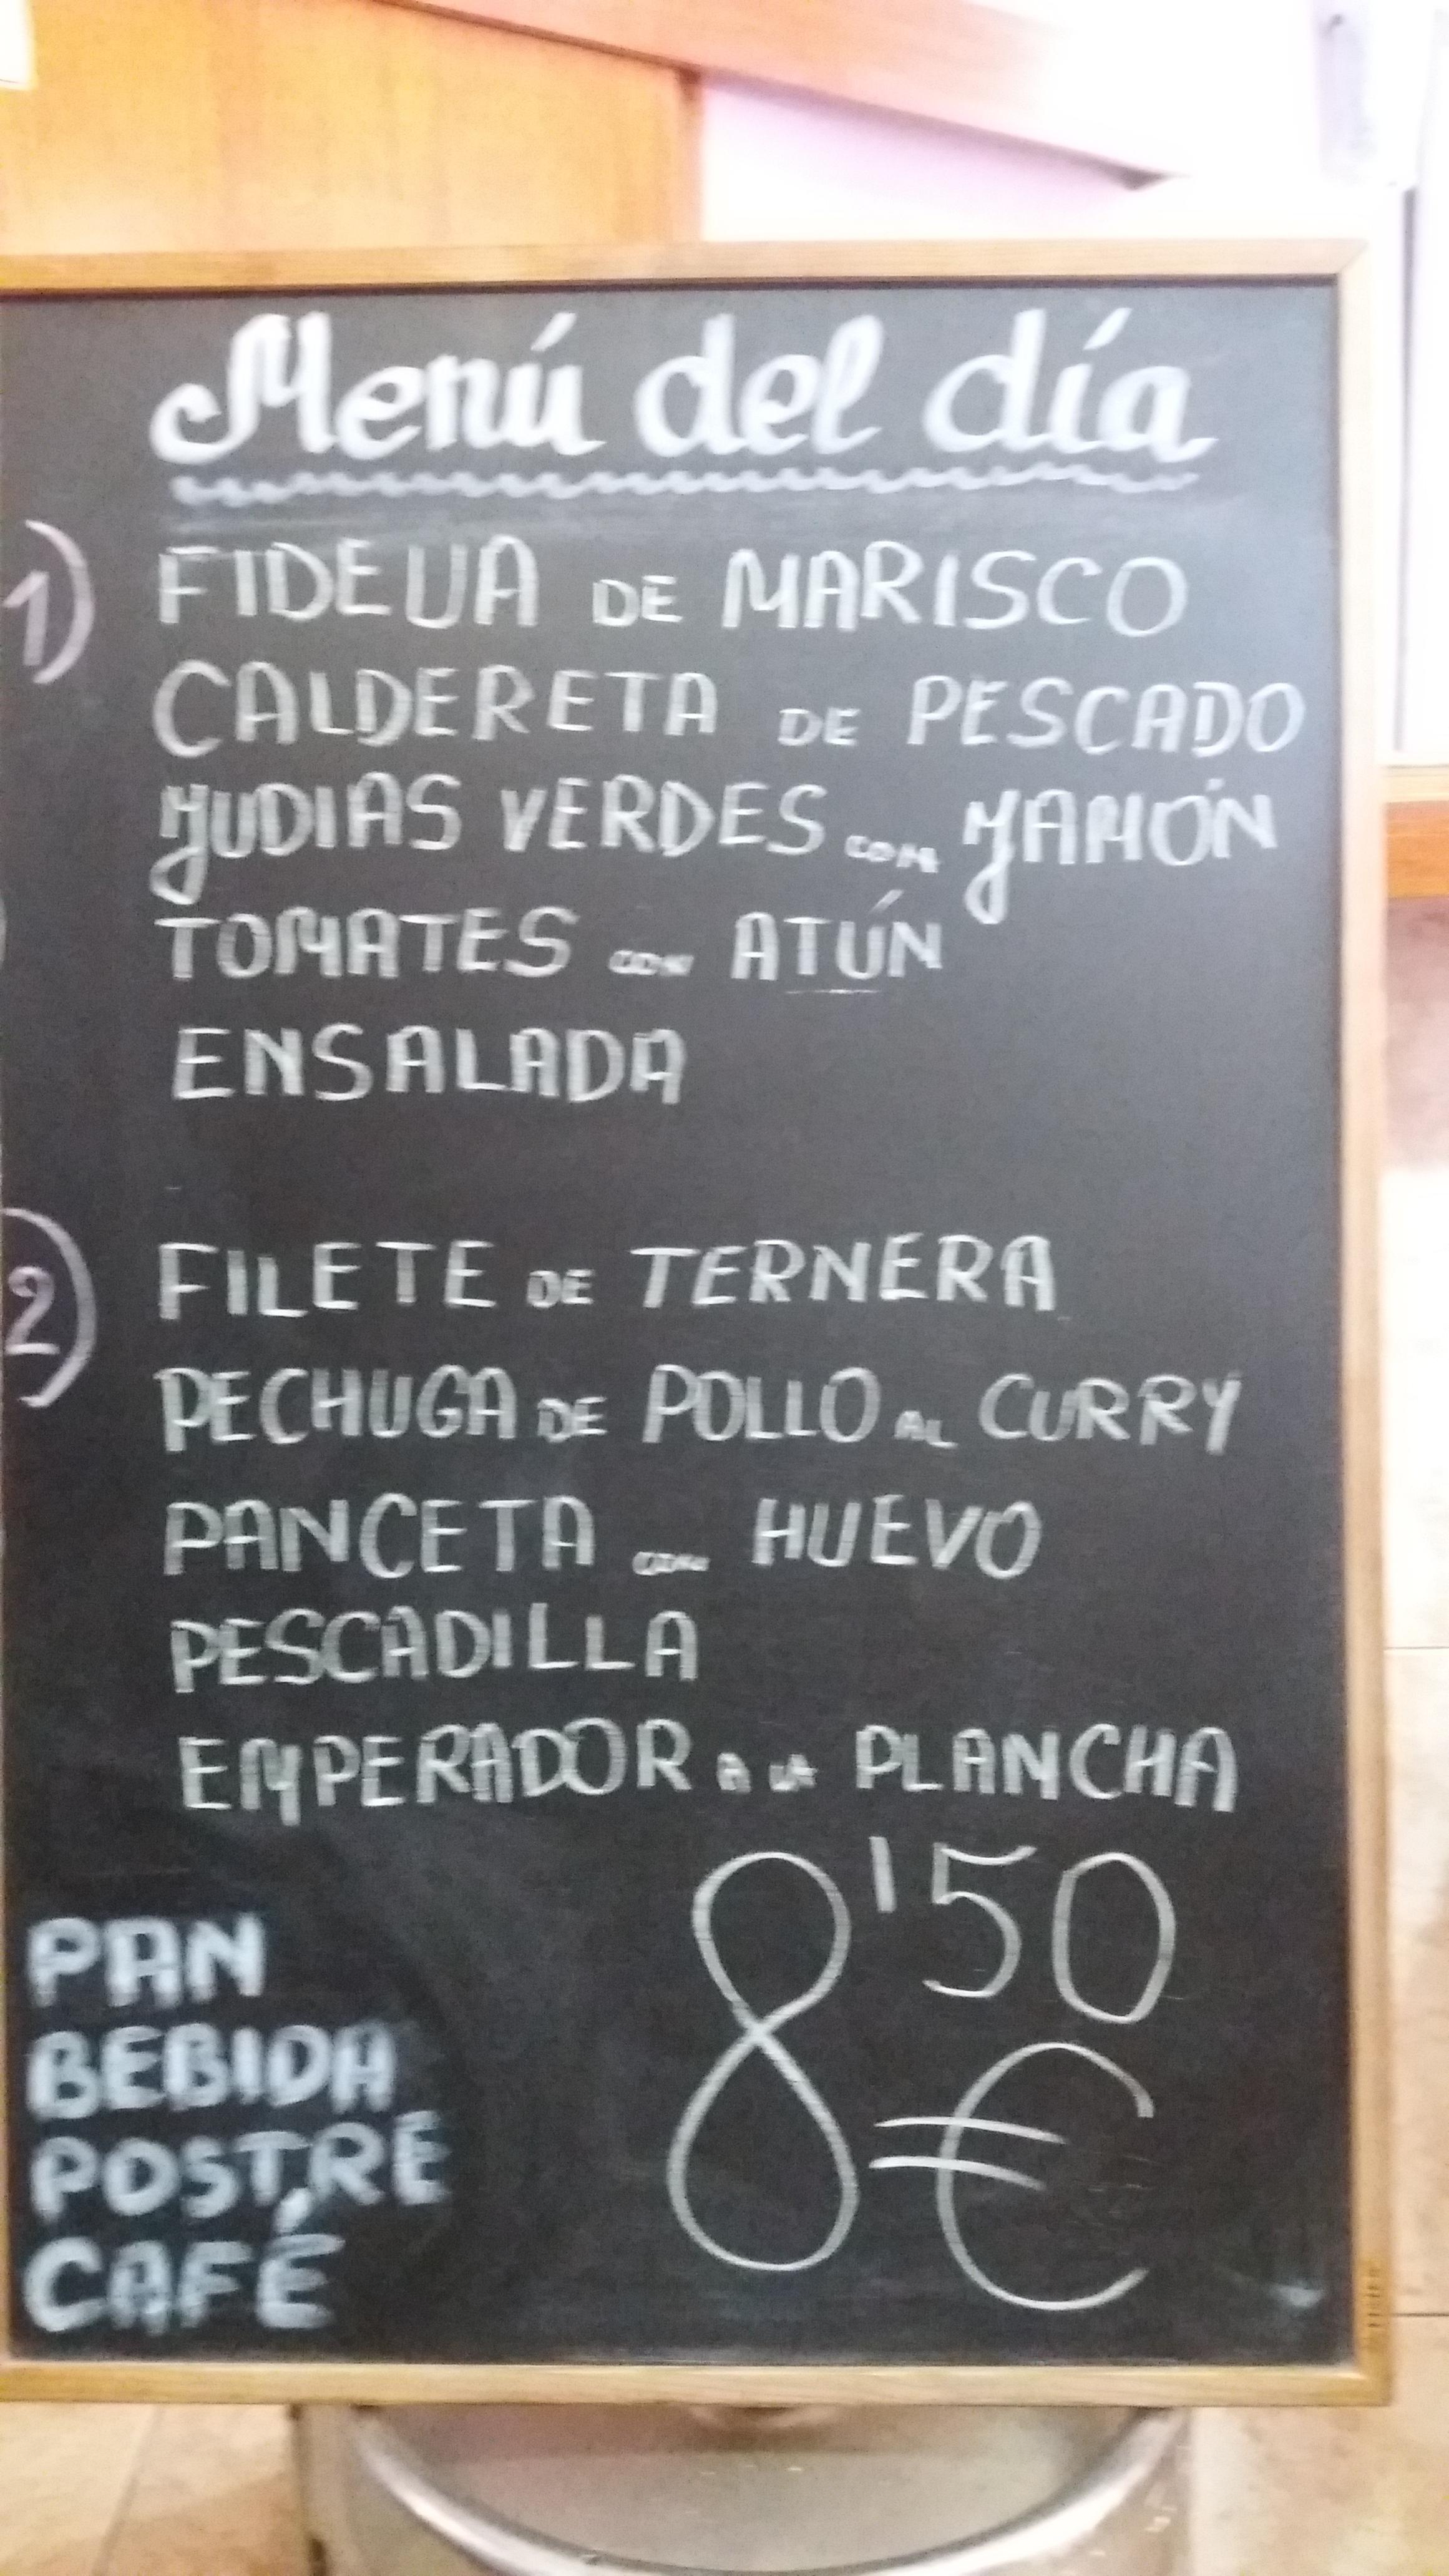 Menú del día
1) FIDEUA DE MARISCO
CALDERETA DE PESCADO
JUDIAS VERDES CON JAMÓN
TOMATES CON ATÚN
ENSALADA
2) FILETE DE TERNERA
PECHUGA DE POLLO AL CURRY
PANCETA CON HUEVO
PESCADILLA
EMPERADOR A LA PLANCHA
8'50 €
PAN
BEBIDA
POSTRE
CAFÉ